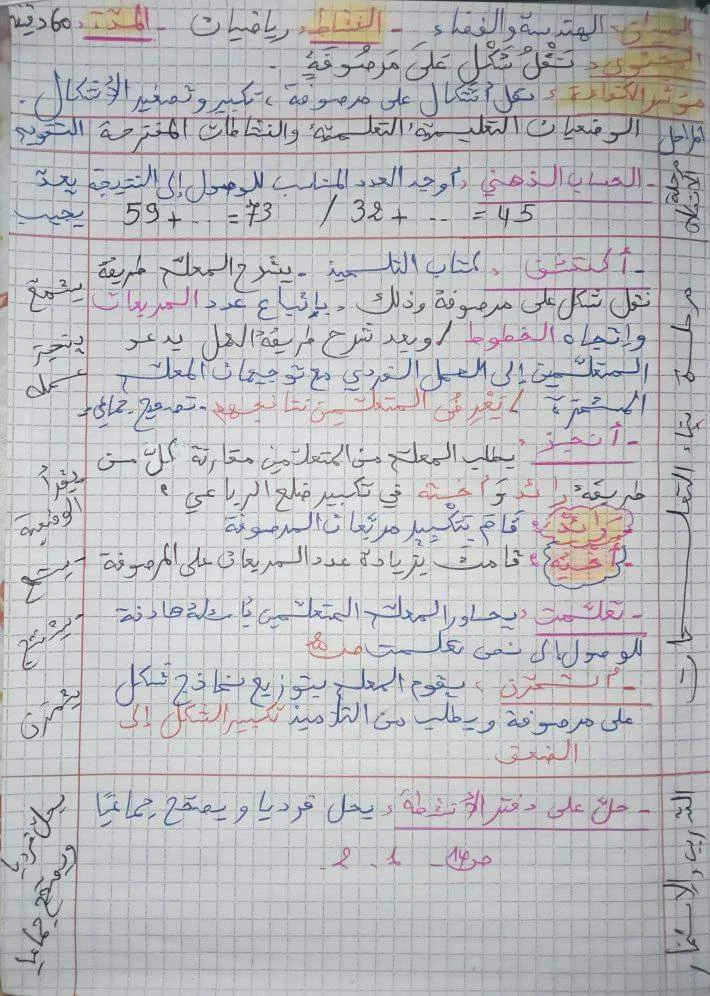 الميدان: الهندسة والفضاء - النشاط: رياضيات - المدّة: 60 دقيقة
المحتوى: نَقْلُ شَكْلٍ عَلَى مَرْصُوفَةٍ.
مؤشر الكفاءة: نقل أشكال على مرصوفة، تكبير وتصغير الأشكال.
المراحل
الوضعيات التعليميّة التعلّميّة والنشاطات المقترحة
التقويم
مرحلة الانطلاق
- الحساب الذهني: أوجد العدد المناسب للوصول إلى النتيجة
59 + .. = 73 / 32 + .. = 45
يعدّ
يجيب
مرحلة بناء التعلمات
- أكتشف: كتاب التلميذ - يشرح المعلّم طريقة
نقل شكل على مرصوفة وذلك بإتباع عدد المربعات
واتجاه الخطوط / وبعد شرح طريقة العمل يدعو
المتعلّمين إلى العمل الفردي مع توجيهات المعلّم
المستمرّة / يَعْرِضُ المتعلّمين نتائجهم - تصحيح جماعي-
- أنجز: يطلب المعلّم من المتعلّمين مقارنة كلّ من
طريقة رائد وأخته في تكبير ضلع الرباعي:
- رَائِدْ: قام بتَكْبِيرِ مربّعات المرصوفة
- أخته: قامت بزيادة عدد المربعات على المرصوفة
- تعلّمت: يحاور المعلّم المتعلّمين بأسئلة هادفة
للوصول إلى نص تعلمت
- أتمرّن: يقوم المعلم بتوزيع نماذج شكل
على مرصوفة ويطلب من التلاميذ تكبير الشكل إلى
الضعف
يسمع
ينجز
عمله
يقرأ
الوضعية
يستنتج
يتمرّن
- حلّ على دفتر الأنشطة: يحل فرديا ويصحّح جماعيًا
1 - 2 -
يحل فرديا
ويصحح جماعيا